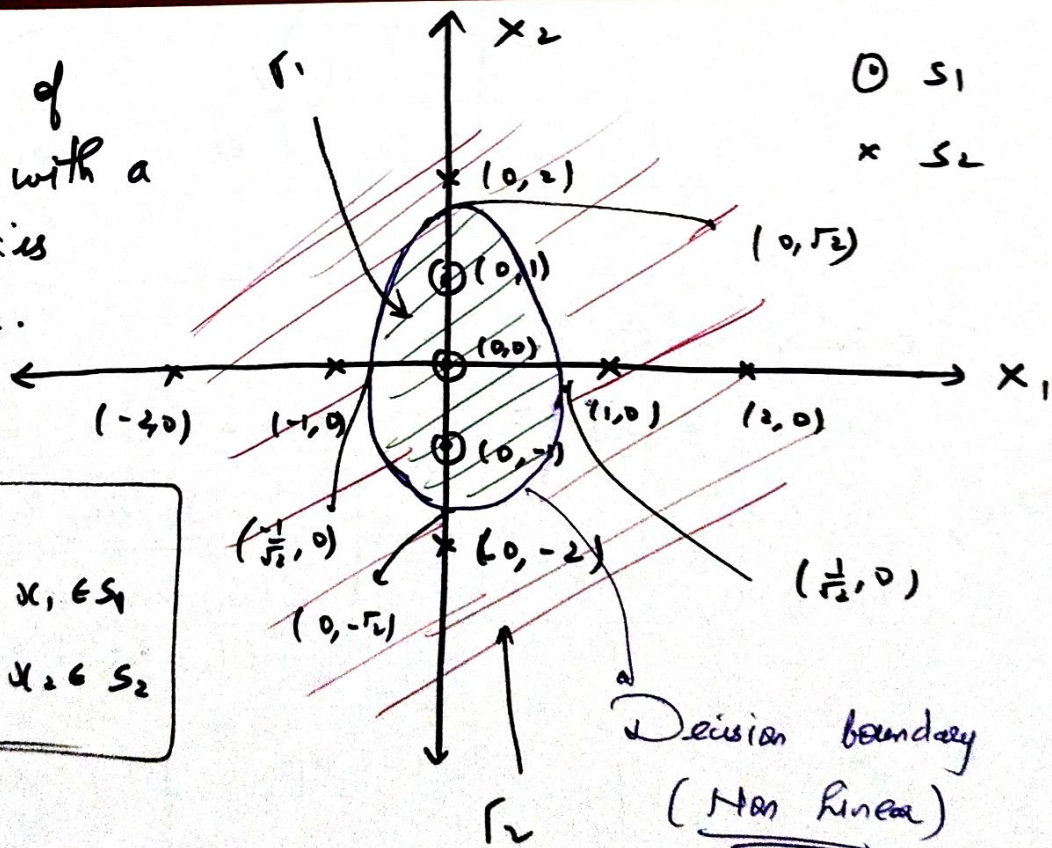 of
with a
is
Γ1
X2
⊙ S1
× S2
(0, 2)
(0, √2)
(0, 1)
(0,0)
X1
(-2,0)
(-1, 0)
(1, 0)
(2, 0)
(0, -1)
(-1/√2, 0)
(0, -2)
(1/√2, 0)
(0, -√2)
x1 ∈ S1
x2 ∈ S2
Decision boundary
(Non Linear)
Γ2